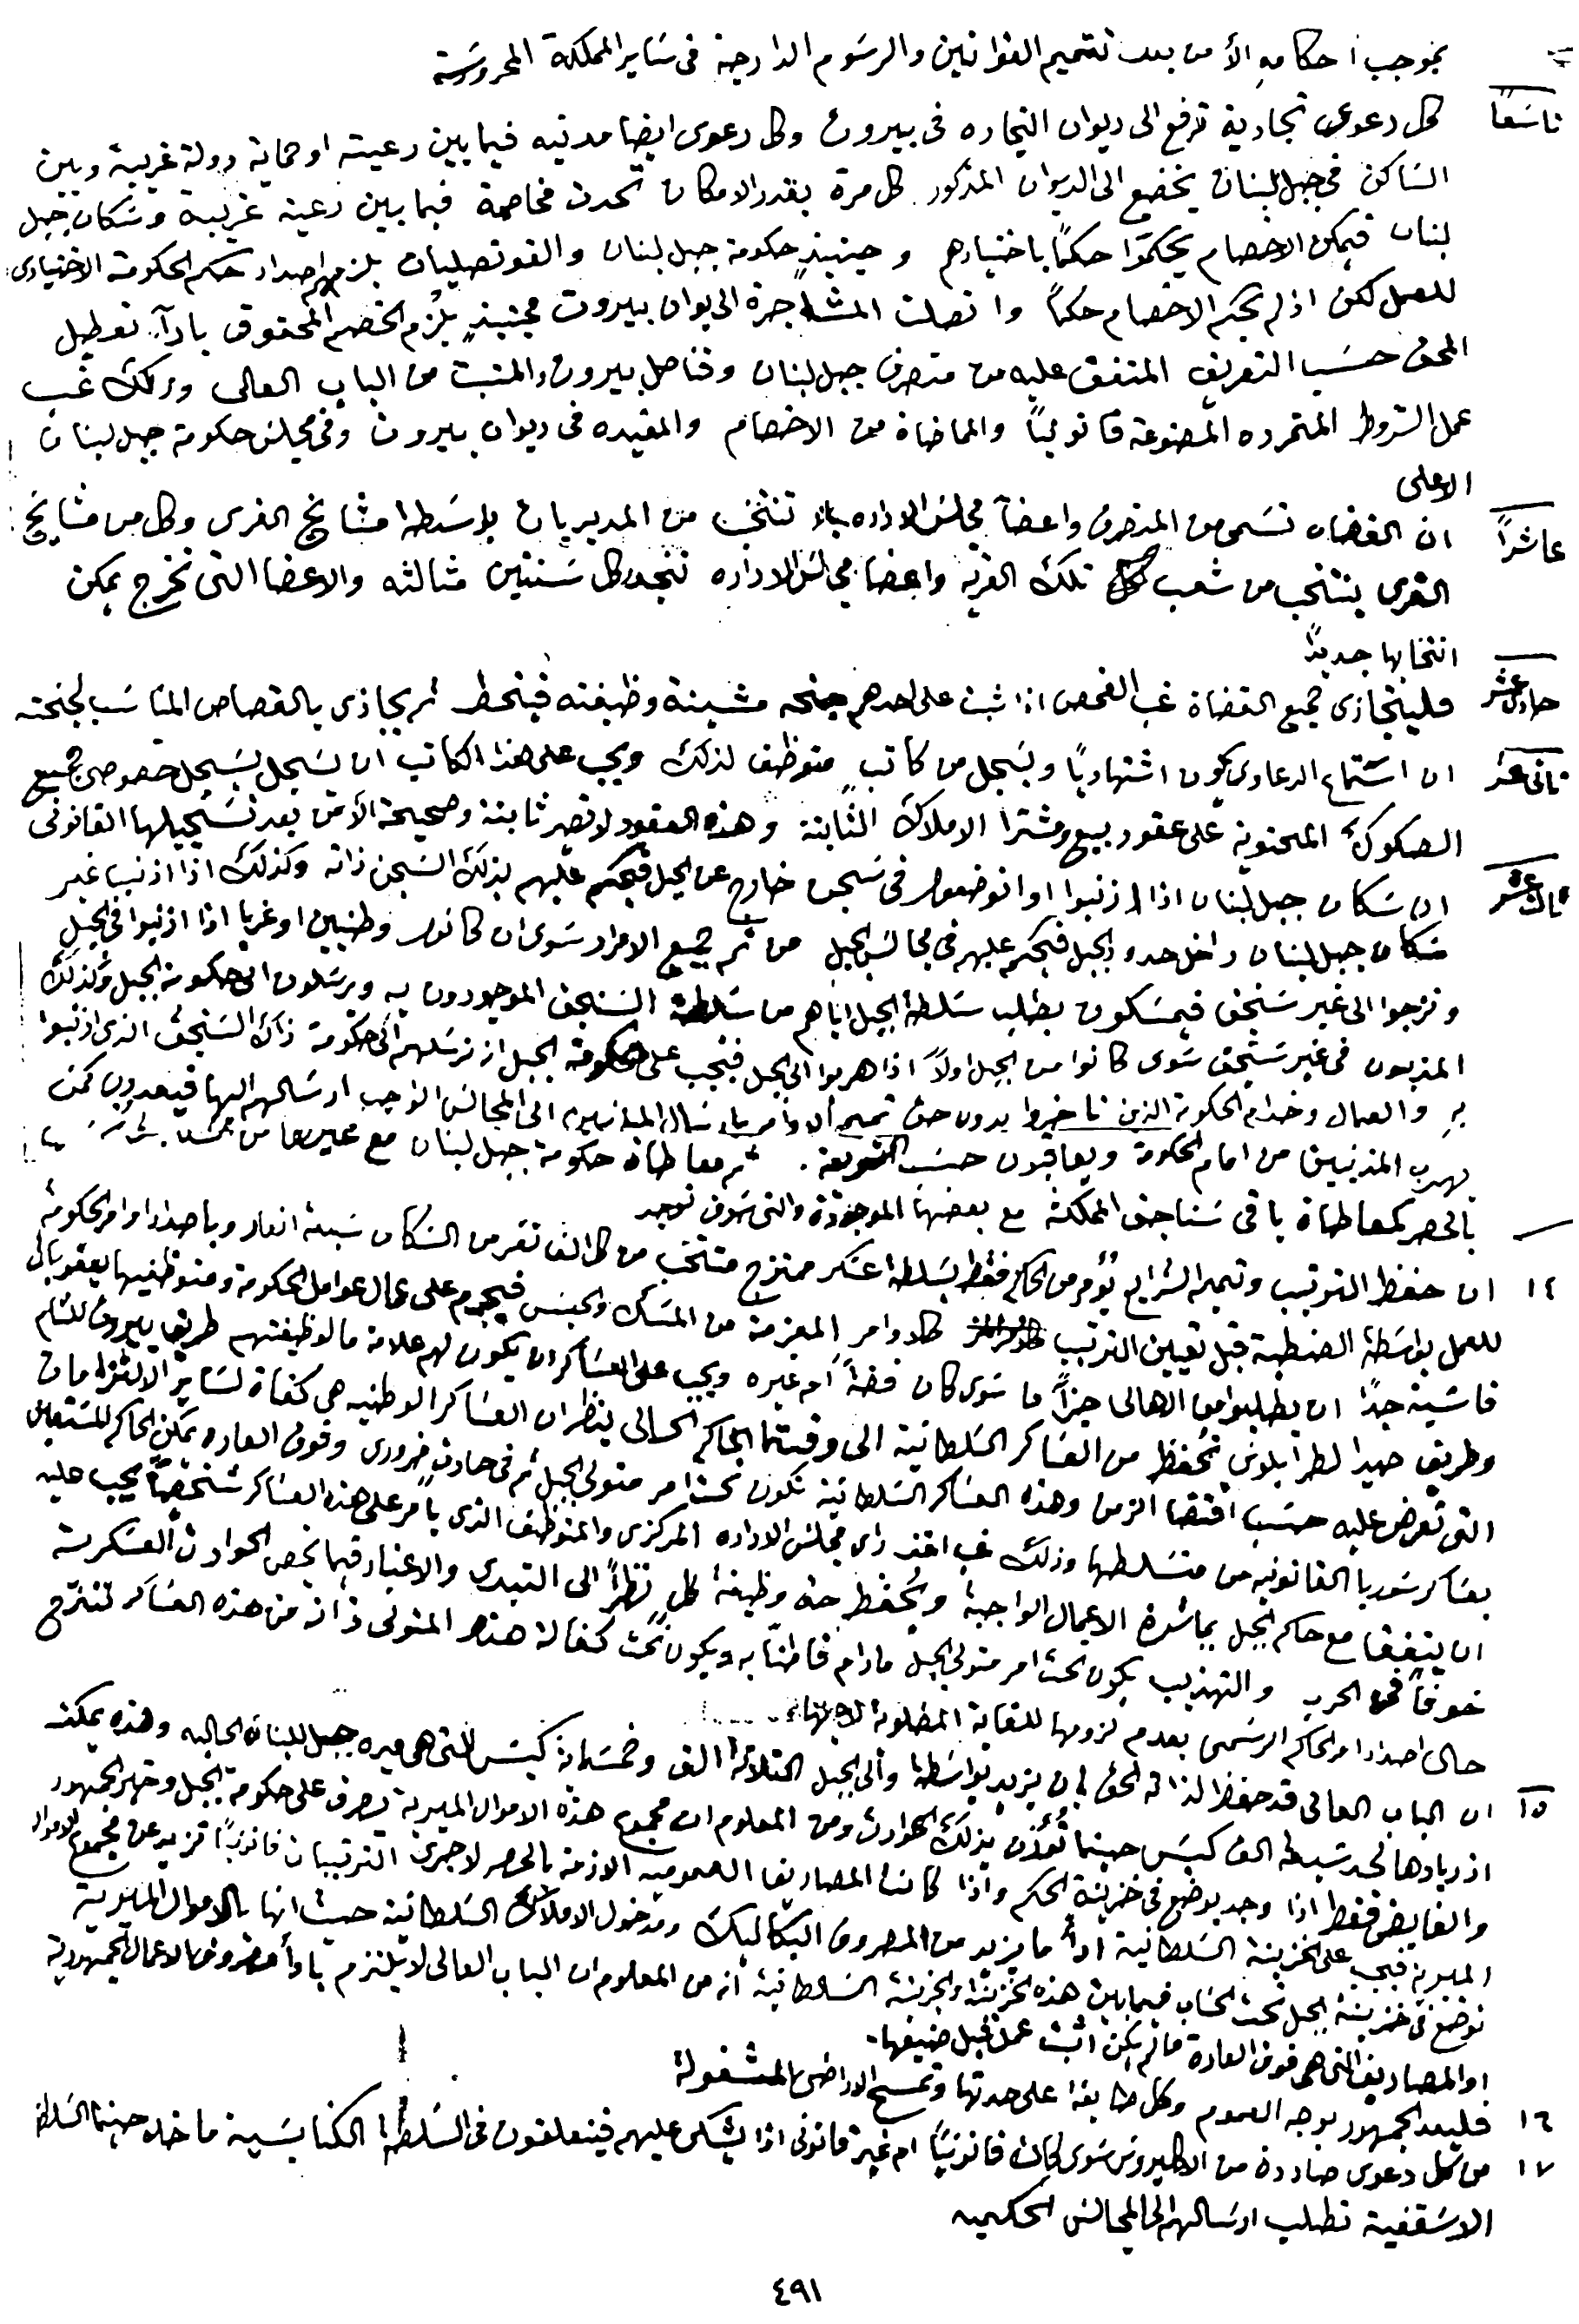 بموجب احكامهِ الأمن بعد تتميم القوانين والرسوم الدارجية فى ساير المملكة المحروسة
تاسعاً كل دعوى تجارية ترفع الى ديوان التجاره فى بيروت وكل دعوى ايضا مدنيه فيما بين رعيته او حماية دولة غريبة وبين
الساكن فى جبل لبنان يخضع الى الديوان المذكور كل مرة بقدر الامكان تحدث مخاصمة فيما بين رعية غريبة وسكان جبل
لبنان فيمكن الاخصام يحكموا حكمًا باختيارهم وحينيذٍ حكومة جبل لبنان والقونصليات يلزمهم اصدار حكم الحكومة الاختيارى
للعمل لكن اذ لم يحكم الاخصام حكمًا واتصلت المشاجرة الى ديوان بيروت فحينيذٍ يلزم الخصم المحقوق بادآء تعطيل
المحق حسب التعريف المتفق عليه من متصرف جبل لبنان وقناصل بيروت والمثبت من الباب العالى وذلك غب
عمل الشروط المتحرره المصنوعة قانونياً والماضاة من الاخصام والمقيده فى ديوان بيروت وفى مجلس حكومة جبل لبنان
الاعلى
عاشراً ان القضاه تسمى من المتصرف واعضآء مجلس الاداره تنتخب من المديريات بواسطة مشايخ القرى وكل من مشايخ
القرى ينتخب من شعب تلك القريه واعضا مجالس الاداره تتجدد كل سنتين مثالثه والاعضا التى تخرج يمكن
انتخابها جديداً
حادى عشر فليتجازى جميع القضاة غب الفحص اذا ثبت على احدهم جنحه مشينة وظيفته فينحط ثم يجازى بالقصاص المناسب لجنحته
ثانى عشر ان استماع الدعاوى يكون اشتهاديًا ويسجل من كاتبٍ متوظف لذلك ويجب على هذا الكاتب ان يسجل بسجل خصوصى جميع
الصكوك المحتوية على عقود بيع ومشترا الاملاك الثابتة وهذه العقود لا تصير ثابتة وصحيحة الأ من بعد تسجيلها القانونى
ثالث عشر ان سكان جبل لبنان اذا اذنبوا او انوضعوا فى سجن خارج عن الجبل فيحكم عليهم بذلك السجن ذاته وكذلك اذا اذنب غير
سكان جبل لبنان داخل حدود الجبل فيحكم عليهم فى مجالس الجبل من ثم جميع الافراد سوى ان كانوا وطنيين او غربا اذا اذنبوا فى الجبل
ونزحوا الى غير سنجق فيمسكون بطلب سلطة الجبل اياهم من سلطة السنجق الموجودون به ويرسلون الى حكومة الجبل وكذلك
المذنبون فى غير سنجق سوى كانوا من الجبل اولاً اذا هربوا الى الجبل فيجب على حكومة الجبل ان ترسلهم الى حكومة ذاك السنجق الذى اذنبوا
بهِ والعمال وخدام الحكومة الذين تاخروا بدون حق تتميم اوامر بارسال المذنبين الى المجالس الواجب ارسالهم اليها فيعدون كمن
يهرب المذنبين من امام الحكومة ويعاقبون حسب الشريعة . ثم معاطاة حكومة جبل لبنان مع غيرها من
بالحصر كمعاطاة باقى سناجق المملكة مع بعضها الموجودة والتى سوف توجد
١٤ ان حفظ الترتيب وتتميم الشرايع يؤمر من الحاكم فقط بسلطة عسكر ممتزج منتخب من كل الف نفر من السكان سبعة انفار وباصدار اوامر الحكومة
للعمل بواسطة الضبطية قبل تعيين الترتيب كلاوامر المعزمة من المسك والحبس فيحرم على عمال عوامل الحكومة ومتوظفيها بعقوبات
قاسية جدًا ان يطلبوا من الاهالى جزاً ما سوى كان فضةً ام غيره ويجب على العساكر ان يكون لهم علامة ما لوظيفتهم طريق بيروت للشام
وطريق صيدا لطرابلوس تحفظ من العساكر السلطانية الى وقيتما الحاكم الحالى ينظر ان العساكر الوطنيه هى كفاة لساير الالتزامات
التى تعرض عليه حسب اقتضا الزمن وهذه العساكر السلطانية تكون تحت امر متولى الجبل ثم فى حادثٍ ضرورى وفوق العاده يمكن الحاكم للمستعين
بعساكر سوريا القانونيه من متسلطها وذلك غب اخذ راى مجلس الاداره المركزى والمتوظف الذى يأمر على هذه العساكر شخصياً يجب عليه
ان يتفق مع حاكم الجبل بمباشرة الاعمال الواجبة ويحفظ حق وظيفة كلٍ نظراً الى التبدى والاختيار فيما يخص الحوادث العسكرية
خوفاً فى الحرب والتهذيب يكون تحت امر متولى الجبل مادام قاطناً به ويكون تحت كفالة هذا المتولى ذاته من هذه العساكر تنتزح
حالى اصدار امر الحاكم الرسمى بعدم لزومها للغاية المطلوبة لاجلها
١٥ ان الباب العالى قد حفظ لذاته الحق بان يزيد بواسطة والى الجبل الثلاثة الف وخمسماية كيس التى هى ميره جبل لبنان الحاليه وهذه يمكن
ازديادها لحد سبعة الف كيس حينما تؤذن بذلك الحوادث ومن المعلوم ان مجموع هذه الاموال الميرية يصرف على حكومة الجبل وخير الجمهور
والفايض فقط اذا وجد يوضع فى خزينة الحكم واذا كانت المصاريف العموميه الازمة بالحصر لاجرى الترتيبات قانونياً تزيد عن مجموع الاموال
الميرية فيجب على الخزينة السلطانية ادأ ما يزيد من المصروف البكاليك ومدخول الاملاك السلطانية حيث انها بالاموال الميرية
توضع فى خزينة الجبل تحت الحساب فيما بين هذه الخزينة والخزينة السلطانية انه من المعلوم ان الباب العالى لا يلتزم بادأ مصروف الاعمال الجمهورية
او المصاريف التى هى فوق العادة ما لم يكن اثبت عمل قبل صنيعها.
١٦ فليعد الجمهور بوجه العموم وكل طايفة على حدتها وتمسح الاراضى المشغولة
١٧ من كل دعوى صادرة من الاكليروس سوى كان قانونيًا ام غير قانونى اذا يشكى عليهم فيتعلقون فى السلطة الكنايسية ما خلا حينما السلطة
الاسقفية تطلب ارسالهم الى المجالس الحكميه
٤٩١